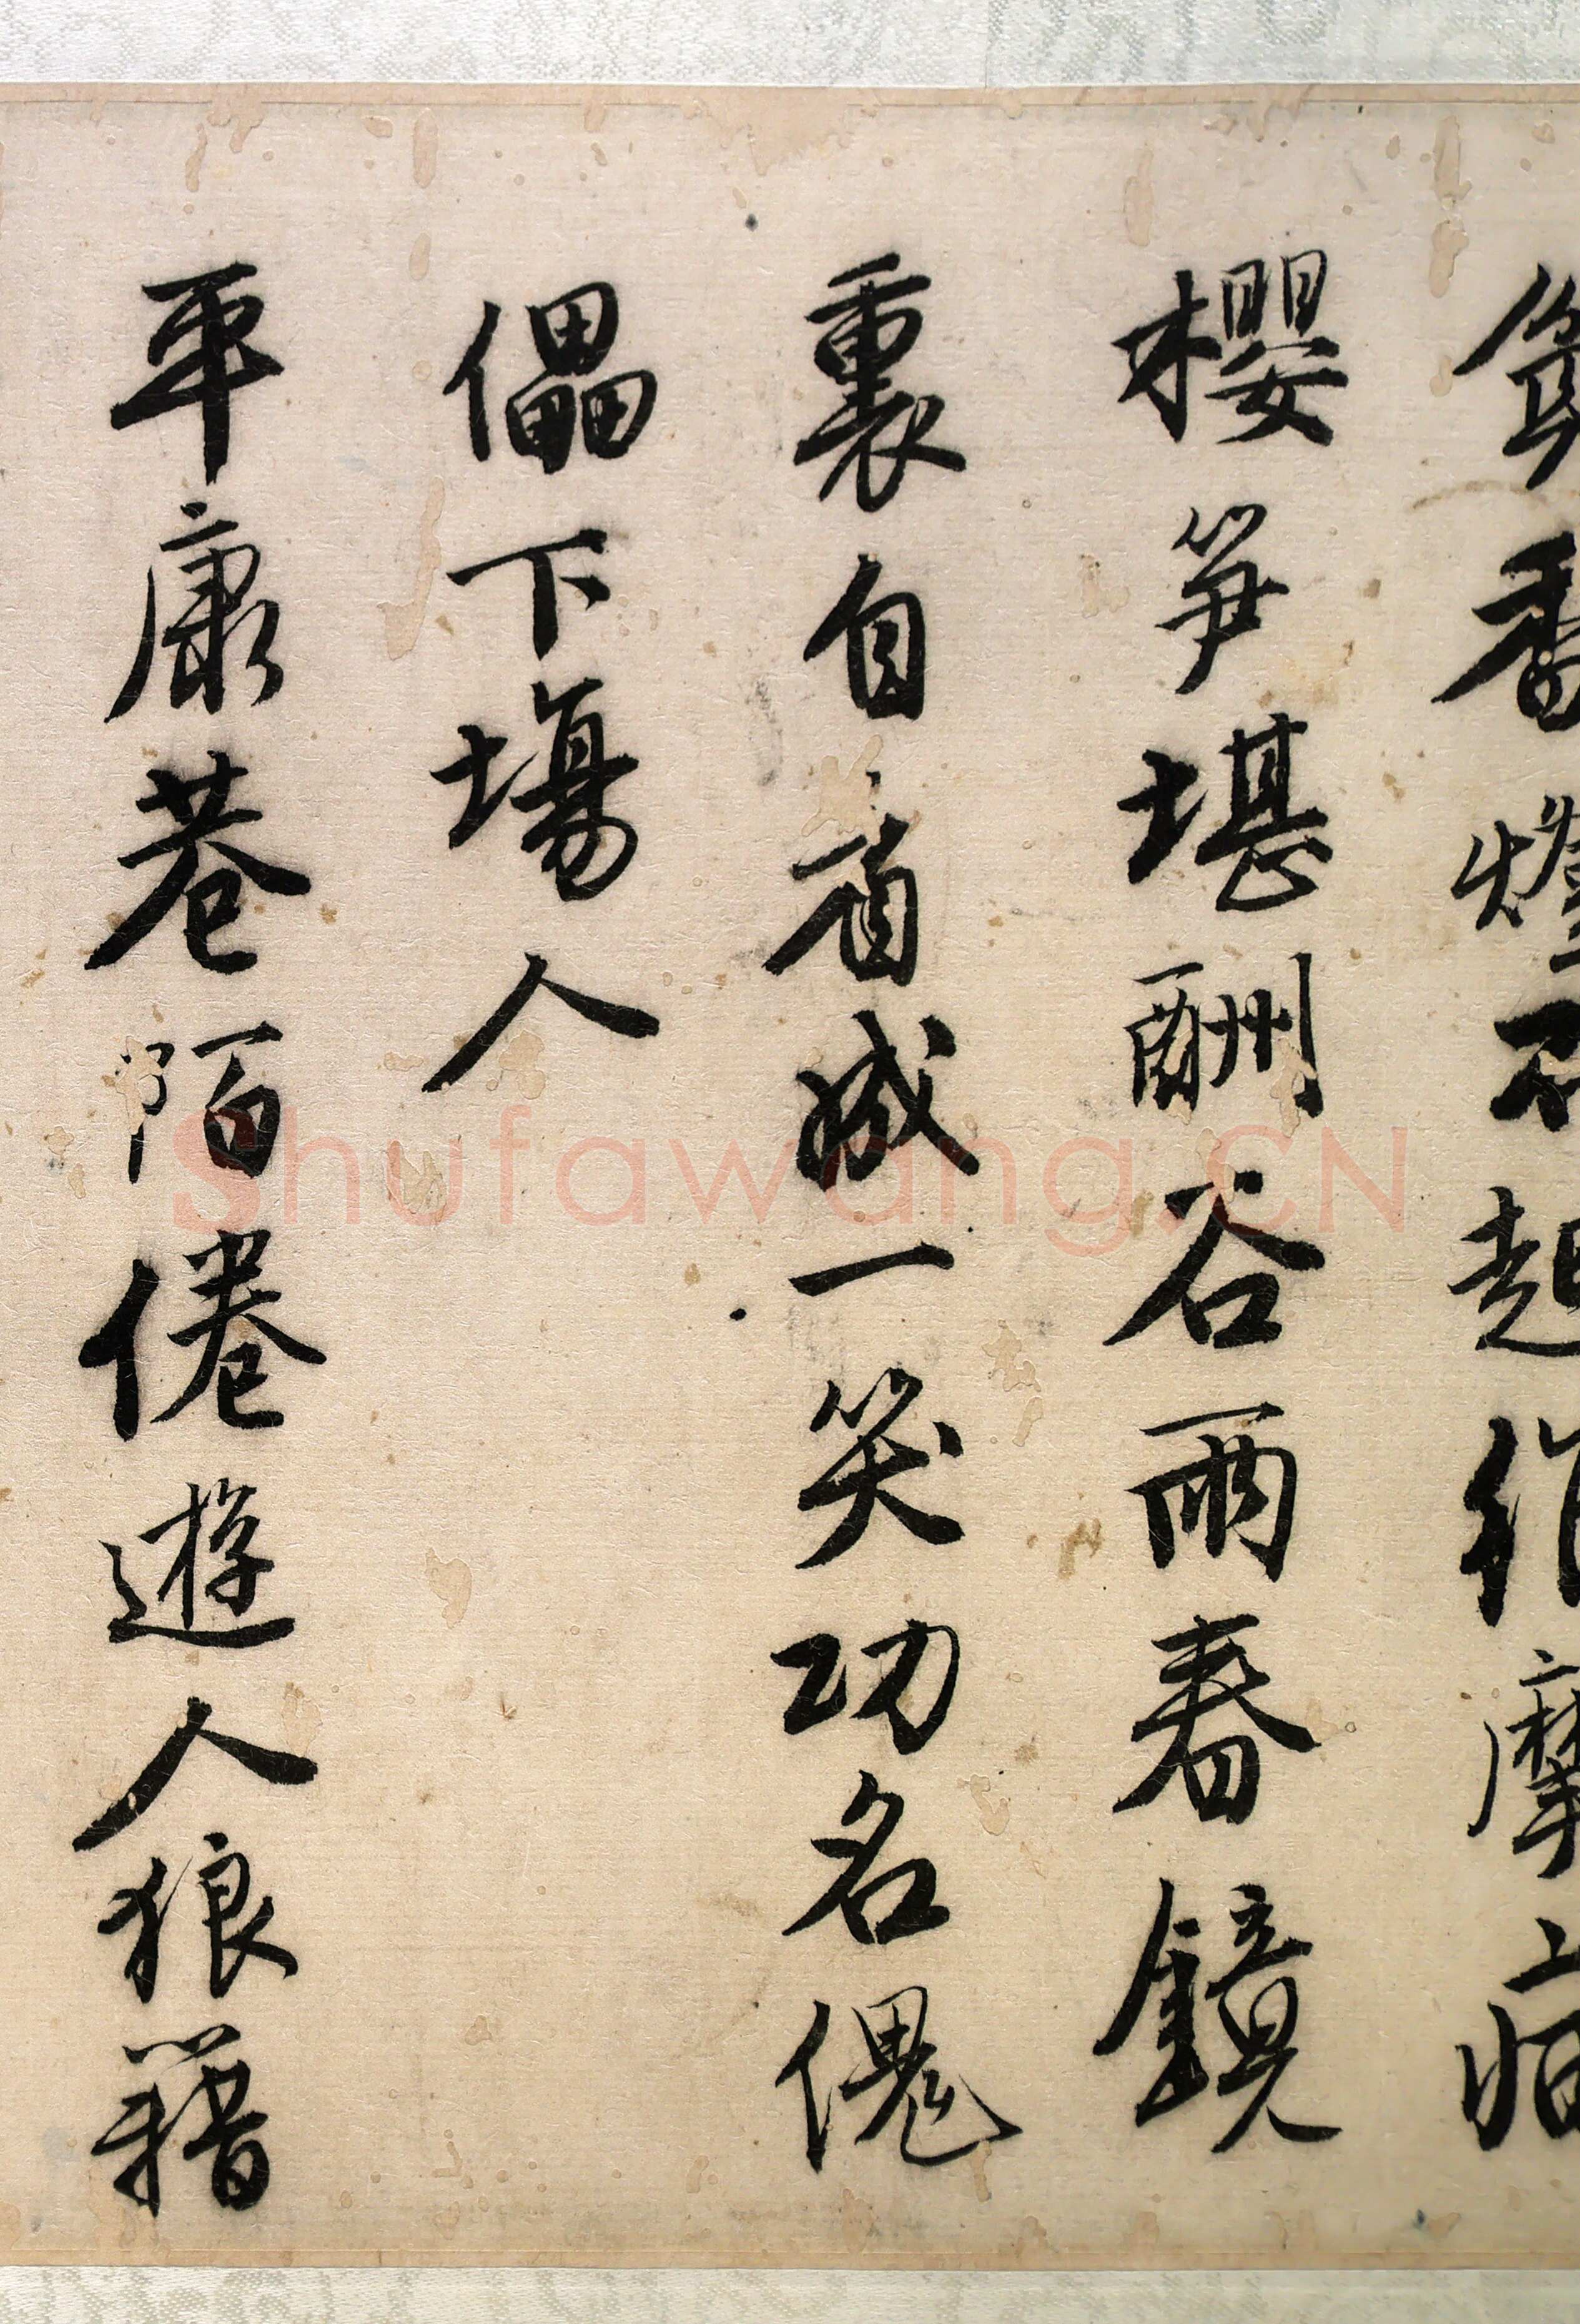 香燈不起維摩病
櫻笋堪酬谷雨春鏡
裏自看成一笑功名傀
儡下場人
平康巷陌倦遊人狼籍
Shufawang.CN